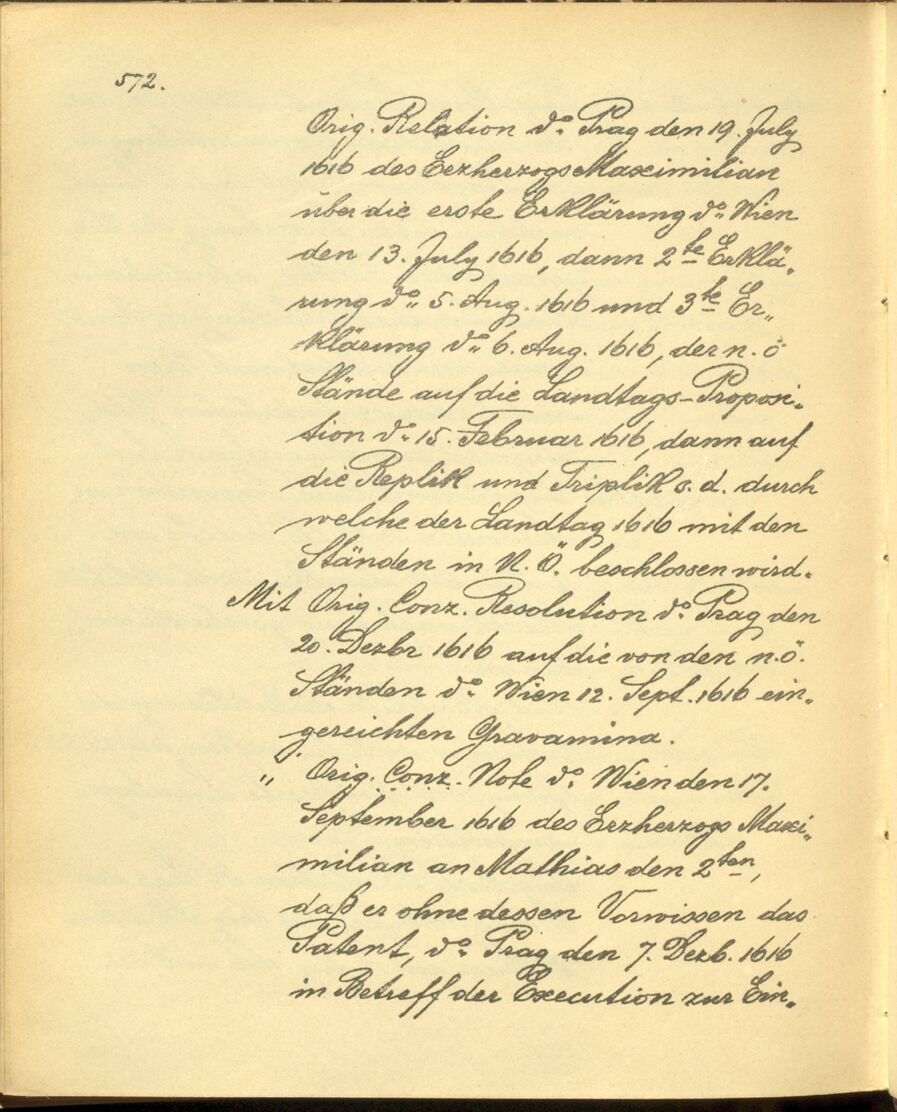 572.
Orig. Relation do. Prag den 19. July
1616 des Erzherzogs Maximilian
über die erste Erklärung do. Wien
den 13. July 1616, dann 2te Erklä„
rung do. 5. Aug. 1616 und 3te Er„
klärung do. 6. Aug. 1616, der n. ö
Stände auf die Landtags-Proposi„
tion do. 15. Februar 1616, dann auf
die Replik und Triplik s. d. durch
welche der Landtag 1616 mit den
Ständen in N. Ö. beschlossen wird.
Mit Orig. Conz. Resolution do. Prag den
20. Dezbr 1616 auf die von den n. ö.
Ständen do. Wien 12. Sept. 1616 ein„
gereichten Gravamina.
„ Orig. Conz. Note do. Wien den 17.
September 1616 des Erzherzogs Maxi„
milian an Mathias den 2ten,
daß er ohne dessen Vorwissen das
Patent, do. Prag den 7. Dezb. 1616
in Betreff der Execution zur Ein„